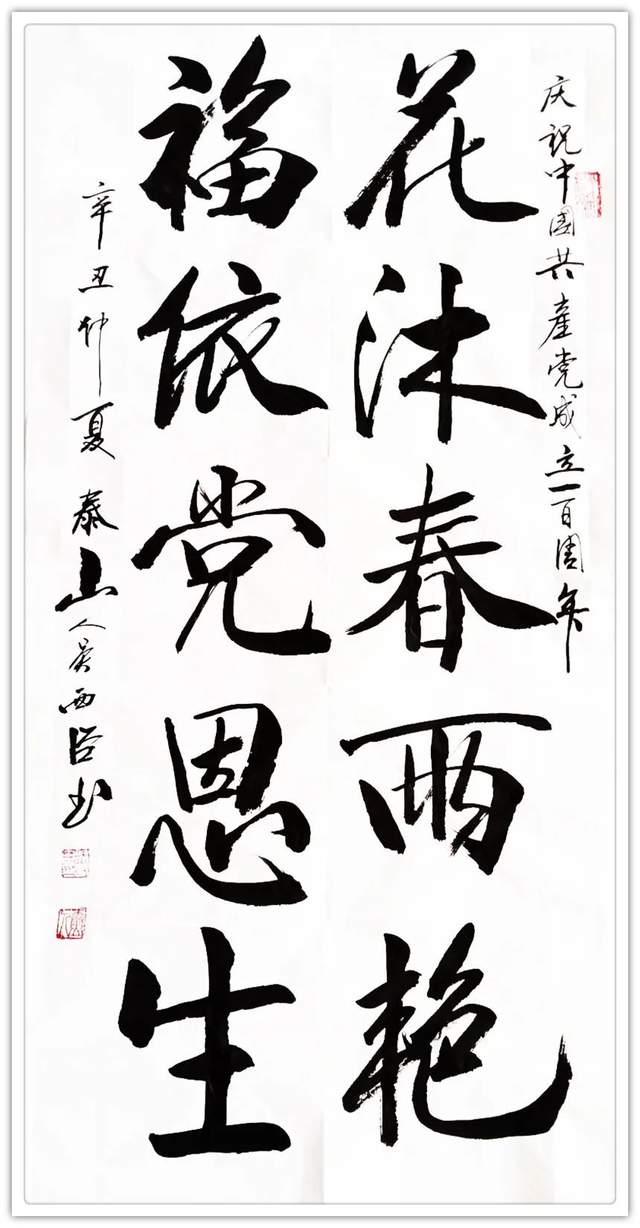 庆祝中国共產党成立一百周年
花沐春雨艳
福依党恩生
辛丑仲夏泰山人吴西臣书